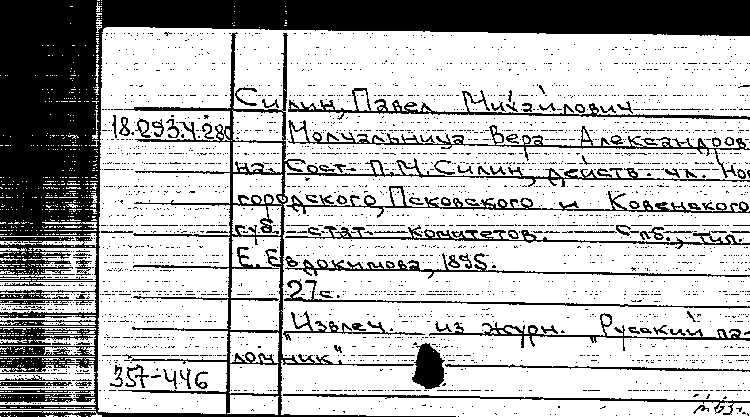 Силин, Павел Михайлович
18.293.4.280 Молчальница Вера Александров
на. Сост. П.М. Силин, действ. чл. Нов
городского, Псковского и Ковенского
губ. стат. комитетов. Спб., тип.
Е. Евдокимова, 1895.
27с.
"Извлеч. из журн. "Русский па-
ломник".
357-446